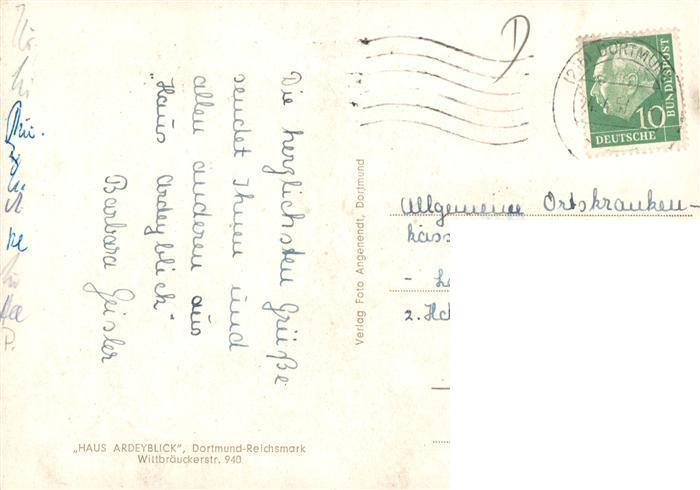 Die herzlichsten Grüße
sendet Ihnen und
allen anderen aus
"Haus Ardeyblick"
Barbara Geisler
„HAUS ARDEYBLICK", Dortmund-Reichsmark
Wittbräuckerstr. 940
Verlag Foto Angenendt, Dortmund
DORTMUN
10
DEUTSCHE
BUNDESPOST
Allgemeine Ortskranken-
kass
2.